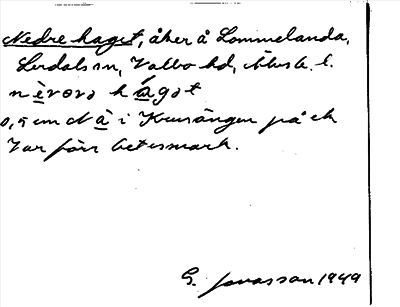 Nedre haget, åker å Lommelanda,
Lerdals sn, Valbo hd, Älvsb. l.
nèvərə hágət
0,5 km N à i Kursängen på ek
Var förr betesmark.
G. Jonasson 1949